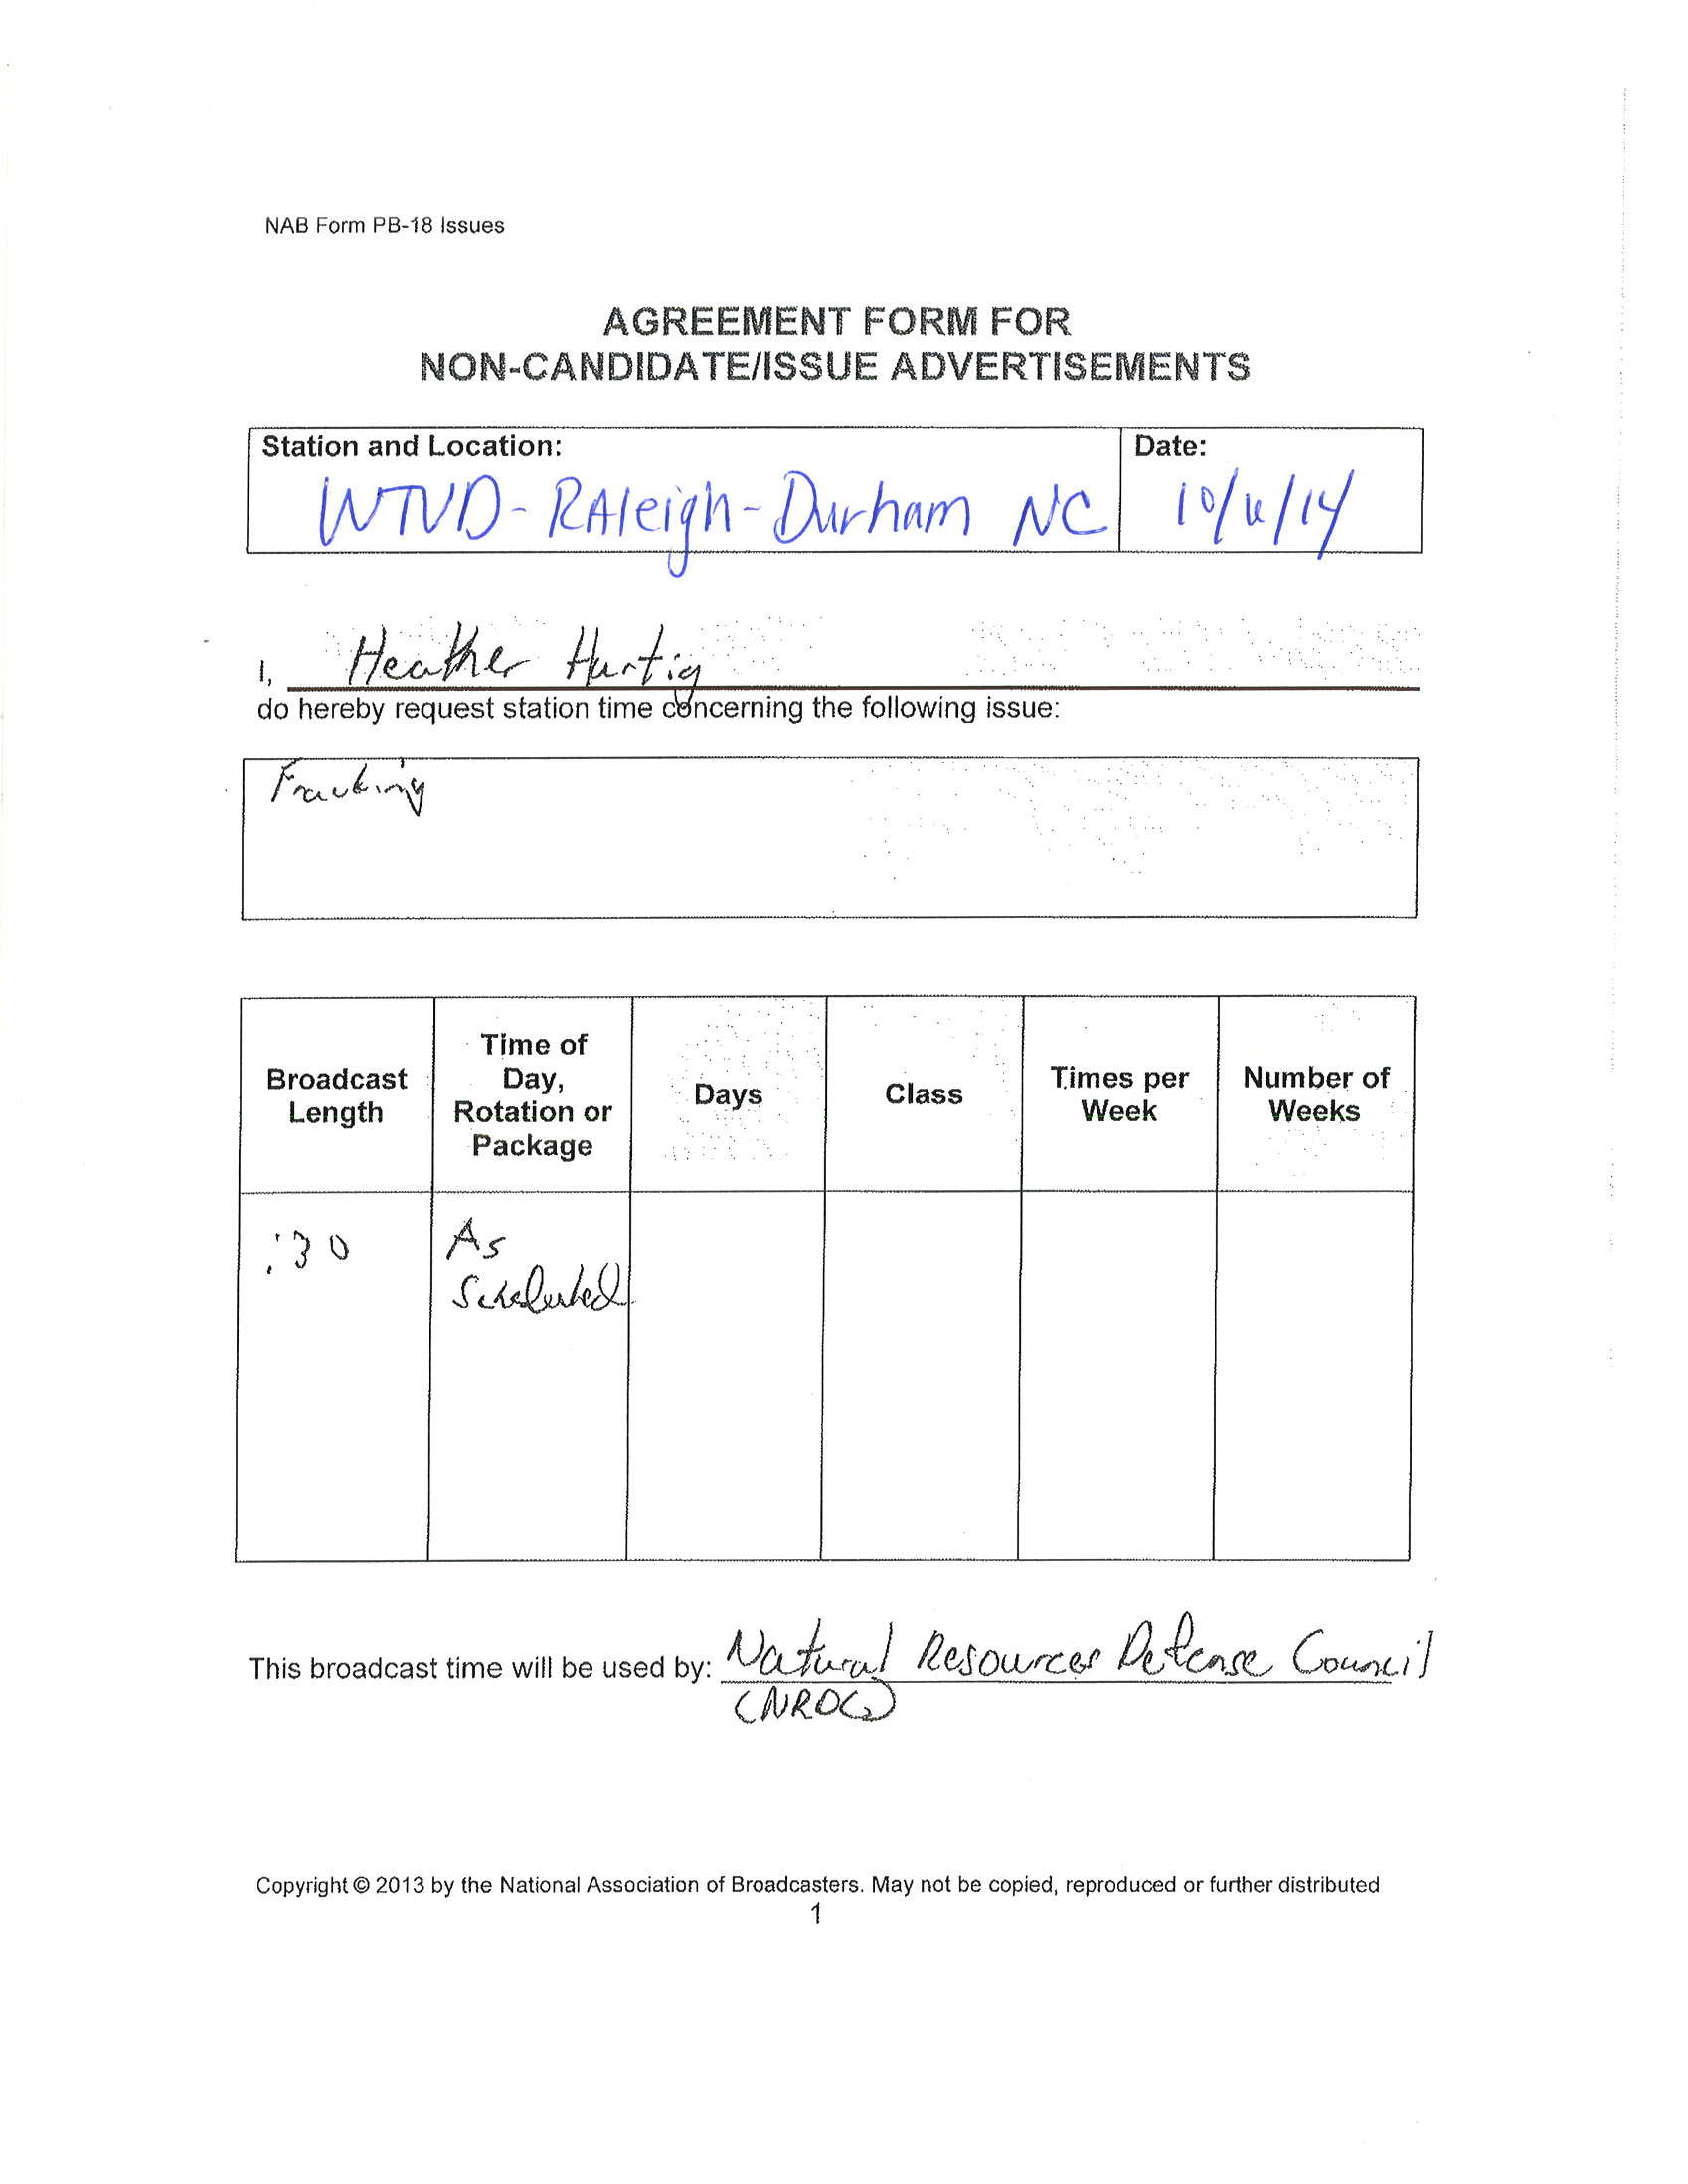 NAB Form PB-18 Issues
AGREEMENT FORM FOR
NON-CANDIDATE/ISSUE ADVERTISEMENTS
Station and Location:
Date:
WTVD-RAleigh-Durham NC
10/6/14
I, Heather Hartig
do hereby request station time concerning the following issue:
Fracking
Broadcast
Length
Time of
Day,
Rotation or
Package
Days
Class
Times per
Week
Number of
Weeks
:30
As
Scheduled
This broadcast time will be used by: Natural Resources Defense Council
(NRDC)
Copyright © 2013 by the National Association of Broadcasters. May not be copied, reproduced or further distributed
1